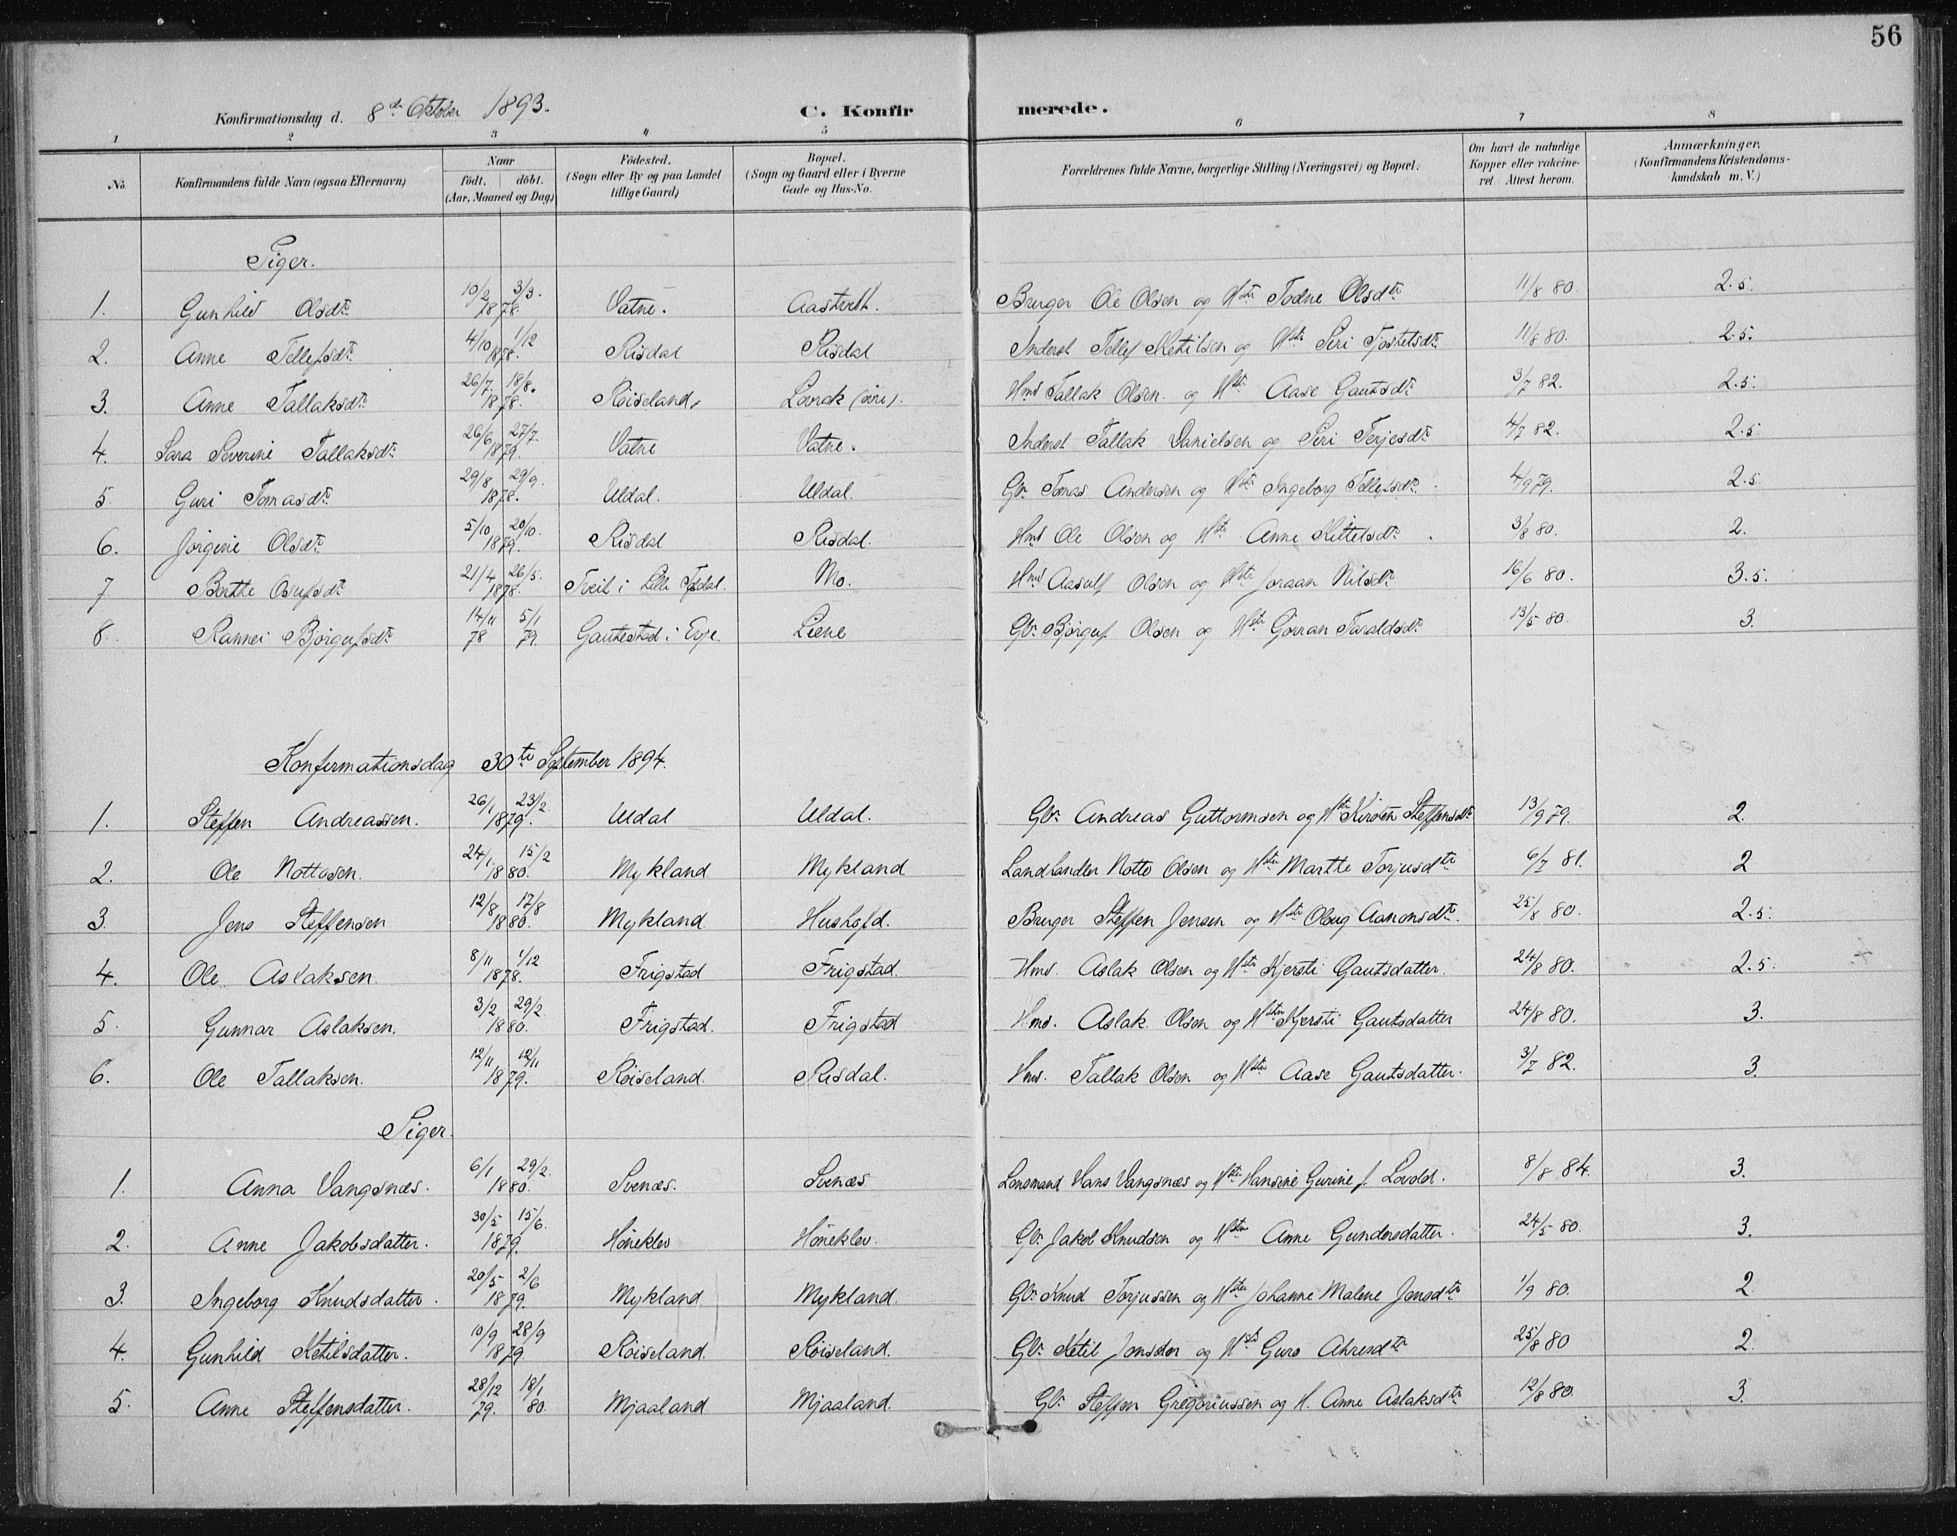 56
Konfirmationsdag d. 8de Oktober 1893. C. Konfirmerede.
1 2 3 4 5 6 7 8
No. Konfirmandens fulde Navn (ogsaa Efternavn) Naar födt. döbt. (Aar, Maaned og Dag) Födested. (Sogn eller By og paa Landet tillige Gaard) Bopæl. (Sogn og Gaard eller i Byerne Gade og Hus-No. Forældrenes fulde Navne, borgerlige Stilling (Næringsvei) og Bopæl. Om havt de naturlige Kopper eller vakcineret. Attest herom. Anmærkninger. (Konfirmandens Kristendomskundskab m. V.)
Piger.
1. Gunhild Olsdtr 10/2 3/3 1878. Vatne. Aastveit. Bruger Ole Olsen og Hstr Todne Olsdtr 11/8 80. 2.5.
2. Anne Tellefsdtr 4/10 1/12 1878. Risdal Risdal Inderst Tellef Ketilsen og Hstr Siri Tostelsdtr 11/8 80. 2.5.
3. Anne Tallaksdtr 26/7 18/8. 1878. Röiseland, Lovrak Hmd Tallak Olsen og Hstr Aase Gautsdtr 3/7 82. 2.5.
4. Sara Severine Tallaksdtr 26/6 27/7. 1879. Vatne Vatne. Inderst Tallak Danielsen og Siri Terjesdtr 4/7 82. 2.5
5 Guri Tomasdtr 29/8 29/9. 1878. Uldal. Uldal. Gbr Tomas Andersen og Hstr Ingeborg Tellefsdtr 4/9 79. 2.5
6. Jörgine Olsdtr 5/10 20/10. 1879. Risdal Risdal. Hmd Ole Olsen og Hstr Anne Kittelsdtr. 3/8 80. 2.
7 Berthe Osufsdtr 21/4 26/5. 1878. Tveit i Lille Topdal. Mo. Hmd Aasulf Olsen og Hstr Joraan Nilsdtr 16/6 80. 3.5.
8. Rannei Bjorgufsdtr 14/11 78 5/1 79. Gautestad i Evje Liene Gbr Björguf Olsen og Hstr Görran Taraldsdtr 13/5 80. 3.
Konfirmationsdag 30te September 1894.
1. Steffen Andreassen. 26/1 23/2. 1879. Uldal Uldal. Gbr Andreas Guttormsen og Hstr Kirsten Steffensdtr 13/9 79. 2.
2. Ole Nottosen. 24/1 15/2 1880. Mykland Mykland Landhandler Notto Olsen og Hstr Marthe Torjusdtr 6/7 81. 2
3. Jens Steffensen 12/8 17/8 1880. Mykland Hushofd. Bruger Steffen Jensen og Hstr Olaug Aanonsdtr. 25/8 80. 2.5.
4. Ole Aslaksen 8/11 1/12 1878. Frigstad Frigstad. Hmd. Aslak Olsen og Hstr Kjersti Gautsdatter. 24/8 80. 2.5.
5. Gunnar Aslaksen. 3/2 29/2. 1880. Frigstad. Frigstad Hmd. Aslak Olsen og Hstr Kjersti Gautsdatter 24/8 80. 3.
6. Ole Tallaksen. 12/11 12/11 1879. Röiseland. Risdal. Hmd. Tallak Olsen og Hstr Aase Gautsdatter. 3/7 82. 3.
Piger.
1. Anna Vangsnæs. 6/1 29/2. 1880. Svenæs. Svenæs Lensmand Hans Vangsnæs og Hstr Hansine Gurine f. Lovold. 8/8 84. 3.
2. Anne Jakobsdatter. 30/5 15/6. 1879. Höneklev Höneklev. Gbr Jakob Knudsen og Hstr Anne Gundersdatter. 24/5 80. 3.
3. Ingeborg Knudsdatter. 20/5 2/6 1879. Mykland. Mykland Gbr Knud Torjussen og Hstr Johanne Malene Jensdtr 1/9 80. 2.
4. Gunhild Ketilsdatter. 10/9 28/9 1879. Röiseland. Röiseland. Gbr Ketil Jensen og Hstr Guro 25/8 80 2.
5. Anne Steffensdatter. 28/12 79. 18/1 80. Mjaaland Mjaaland. Gbr Steffen Gregoriussen og H. Anne Aslaksdtr 12/8 80. 3.